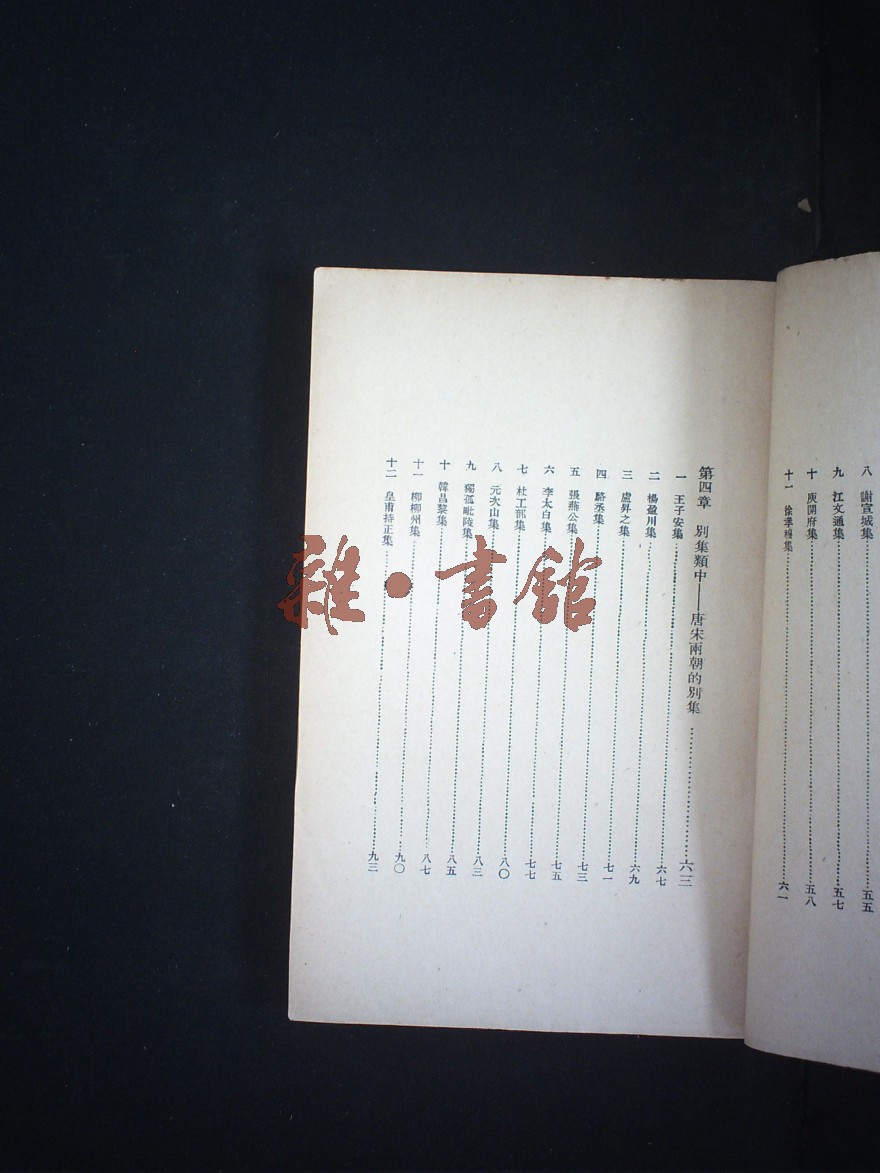 八 謝宣城集……五五
九 江文通集……五七
十 庾開府集……五八
十一 徐孝穆集……六一
第四章 別集類中——唐宋兩朝的別集……六三
一 王子安集……六七
二 楊盈川集……六九
三 盧昇之集……七一
四 駱丞集……七三
五 張燕公集……七五
六 李太白集……七七
七 杜工部集……八〇
八 元次山集……八三
九 獨孤毗陵集……八五
十 韓昌黎集……八七
十一 柳柳州集……九〇
十二 皇甫持正集……九三
雜·書館